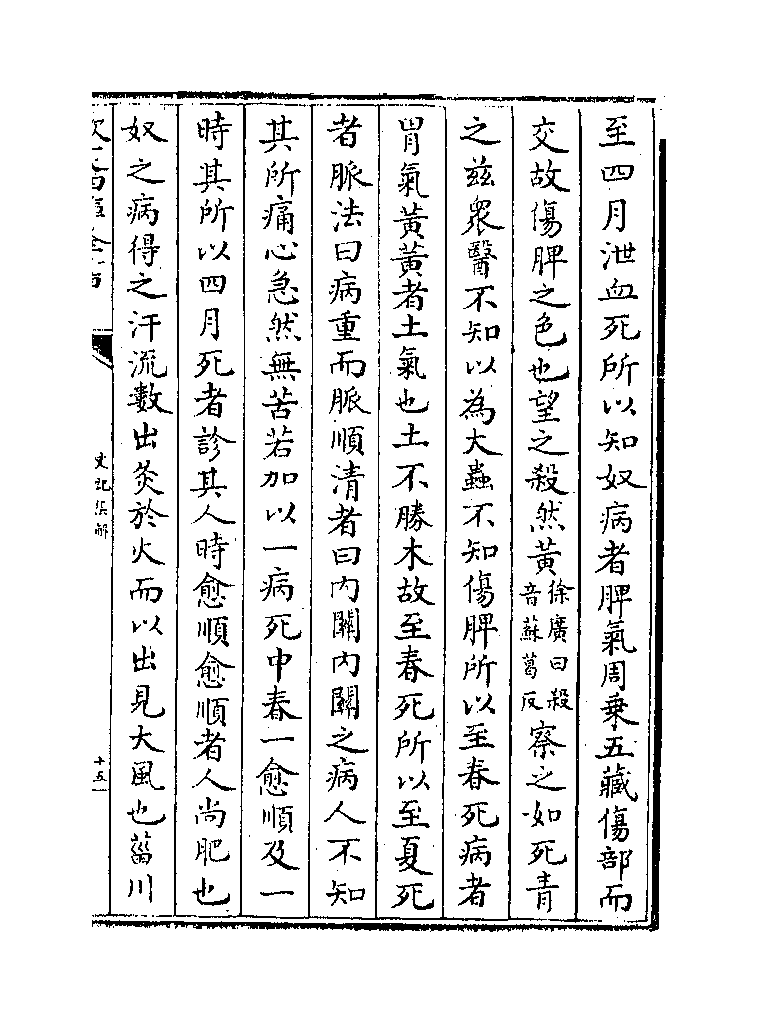 至四月泄血死所以知奴病者脾氣周乗五藏傷部而
交故傷脾之色也望之殺然黄徐廣曰殺音蘇葛反察之如死青
之兹衆醫不知以為大蟲不知傷脾所以至春死病者
胃氣黄黄者土氣也土不勝木故至春死所以至夏死
者脈法曰病重而脈順清者曰内關内關之病人不知
其所痛心急然無苦若加以一病死中春一愈順及一
時其所以四月死者診其人時愈順愈順者人尚肥也
奴之病得之汗流數出炙於火而以出見大風也菑川
史記集解
十五